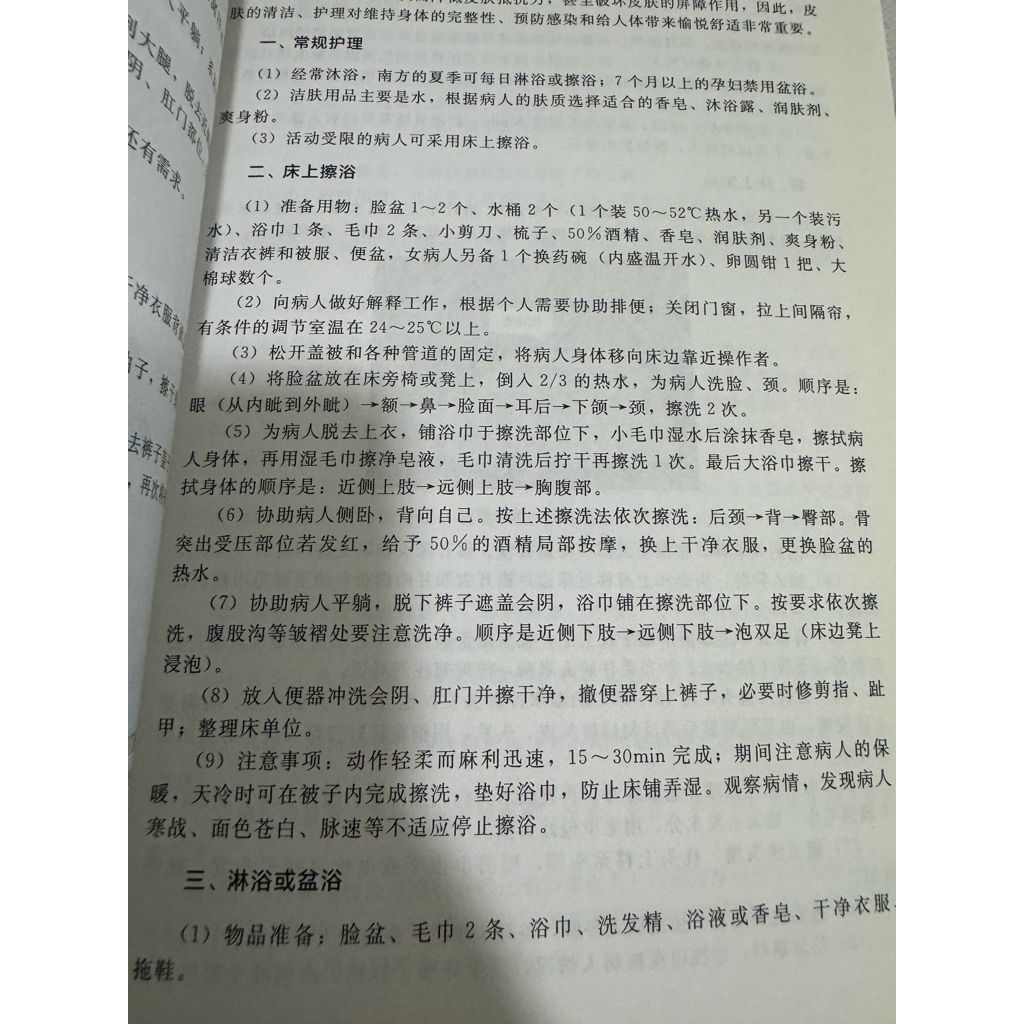 肤的清洁、护理对维持身体的完整性、预防感染和给人体带来愉悦舒适非常重要。
一、常规护理
（1）经常沐浴，南方的夏季可每日淋浴或擦浴；7个月以上的孕妇禁用盆浴。
（2）洁肤用品主要是水，根据病人的肤质选择适合的香皂、沐浴露、润肤剂、
爽身粉。
（3）活动受限的病人可采用床上擦浴。
二、床上擦浴
（1）准备用物：脸盆1～2个、水桶2个（1个装50～52℃热水，另一个装污
水）、浴巾1条、毛巾2条、小剪刀、梳子、50%酒精、香皂、润肤剂、爽身粉、
清洁衣裤和被服、便盆，女病人另备1个换药碗（内盛温开水）、卵圆钳1把、大
棉球数个。
（2）向病人做好解释工作，根据个人需要协助排便；关闭门窗，拉上间隔帘，
有条件的调节室温在24～25℃以上。
（3）松开盖被和各种管道的固定，将病人身体移向床边靠近操作者。
（4）将脸盆放在床旁椅或凳上，倒入2/3的热水，为病人洗脸、颈。顺序是：
眼（从内眦到外眦）→额→鼻→脸面→耳后→下颌→颈，擦洗2次。
（5）为病人脱去上衣，铺浴巾于擦洗部位下，小毛巾湿水后涂抹香皂，擦拭病
人身体，再用湿毛巾擦净皂液，毛巾清洗后拧干再擦洗1次。最后大浴巾擦干。擦
拭身体的顺序是：近侧上肢→远侧上肢→胸腹部。
（6）协助病人侧卧，背向自己。按上述擦洗法依次擦洗：后颈→背→臀部。骨
突出受压部位若发红，给予50%的酒精局部按摩，换上干净衣服，更换脸盆的
热水。
（7）协助病人平躺，脱下裤子遮盖会阴，浴巾铺在擦洗部位下。按要求依次擦
洗，腹股沟等皱褶处要注意洗净。顺序是近侧下肢→远侧下肢→泡双足（床边凳上
浸泡）。
（8）放入便器冲洗会阴、肛门并擦干净，撤便器穿上裤子，必要时修剪指、趾
甲；整理床单位。
（9）注意事项：动作轻柔而麻利迅速，15～30min完成；期间注意病人的保
暖，天冷时可在被子内完成擦洗，垫好浴巾，防止床铺弄湿。观察病情，发现病人
寒战、面色苍白、脉速等不适应停止擦浴。
三、淋浴或盆浴
（1）物品准备：脸盆、毛巾2条、浴巾、洗发精、浴液或香皂、干净衣服、
拖鞋。